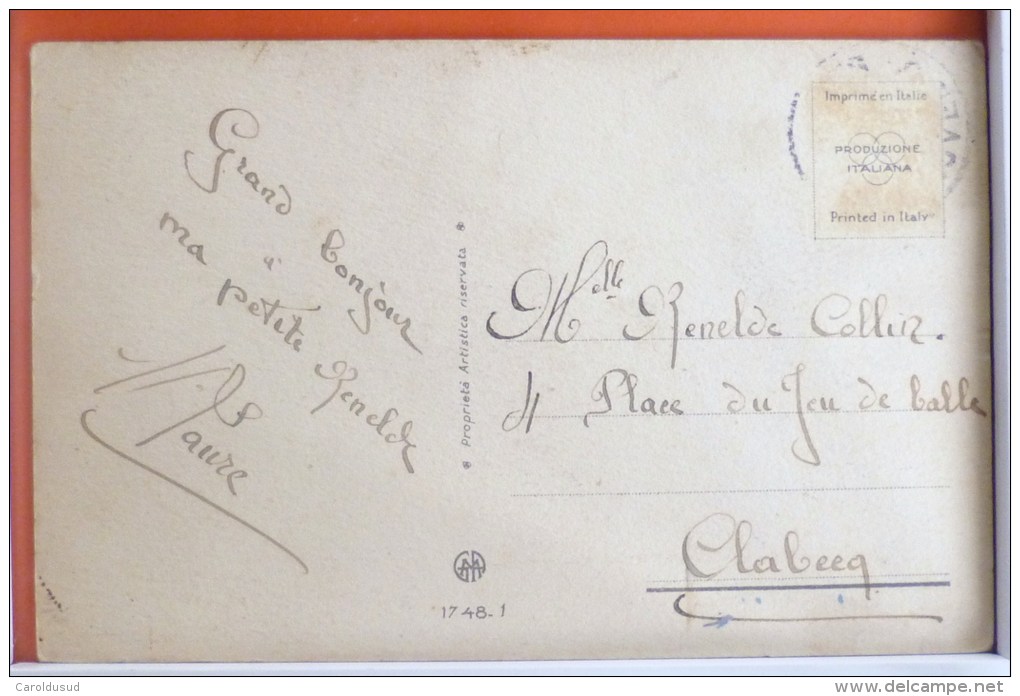 Grand bonjour
à
ma petite Renelde
Laure
* Proprietà Artistica riservata *
Imprimé en Italie
PRODUZIONE
ITALIANA
Printed in Italy
Melle Renelde Collin.
4 Place du Jeu de balle
Clabecq
1748-1
Caroldusud
http://www.delcampe.net